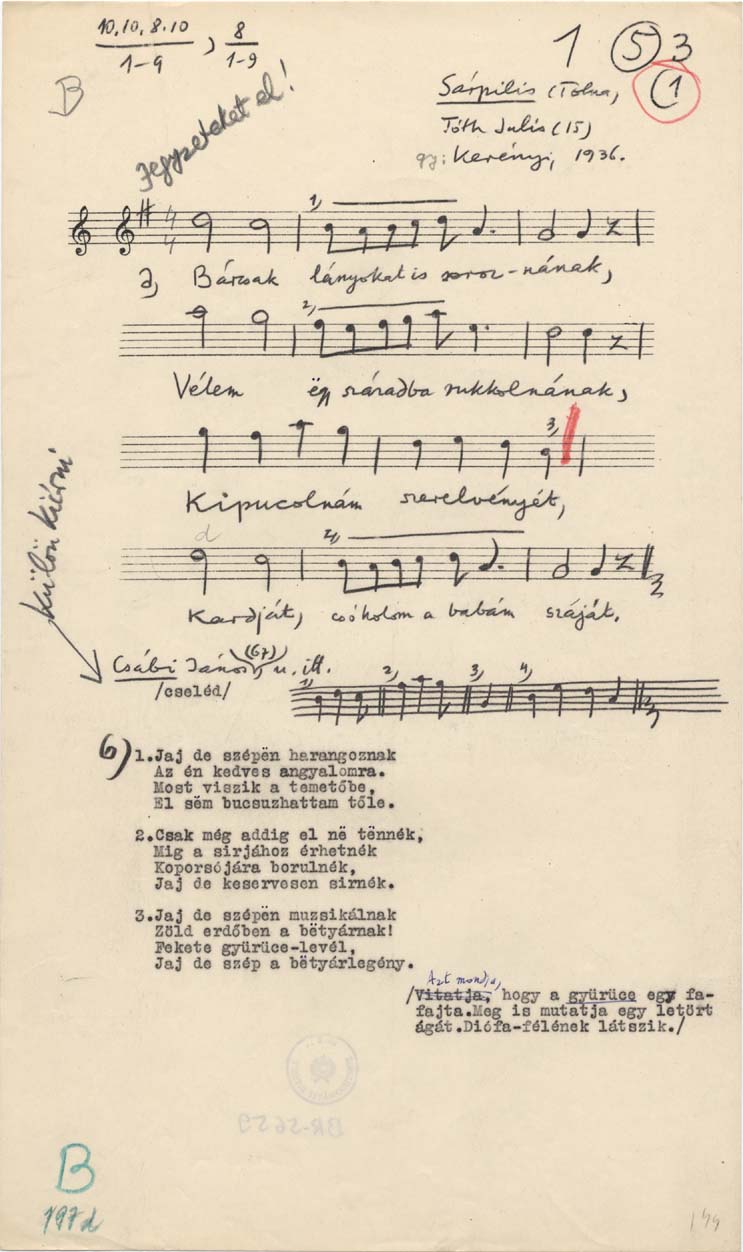 10, 10, 8, 10 , 8
1-9 1-9
1 5 3
1
B
Jegyzeteket el!
Sárpilis (Tolna,
Tóth Julis (15)
gy: Kerényi, 1936.
1,
a, Bárcsak lányokat is soroz-nának,
2,
Vélem ëgy századba rukkolnának,
3,
Kipucolnám szerelvényét,
d
4,
Kardját, csókolom a babám száját.
Külön kiírni
Csábi János (67) u. itt.
/cseléd/
1, 2, 3, 4,
b) 1.Jaj de szépën harangoznak
Az én kedves angyalomra.
Most viszik a temetőbe,
El sëm bucsuzhattam tőle.
2.Csak még addig el në tënnék,
Mig a sirjához érhetnék
Koporsójára borulnék,
Jaj de keservesen sirnék.
3.Jaj de szépën muzsikálnak
Zöld erdőben a bëtyárnak!
Fekete gyürüce-levél,
Jaj de szép a bëtyárlegény.
Azt mondja,
/Vitatja, hogy a gyürüce egy fa-
fajta.Meg is mutatja egy letört
ágát.Diófa-félének látszik./
BR-2629
B
197d
144